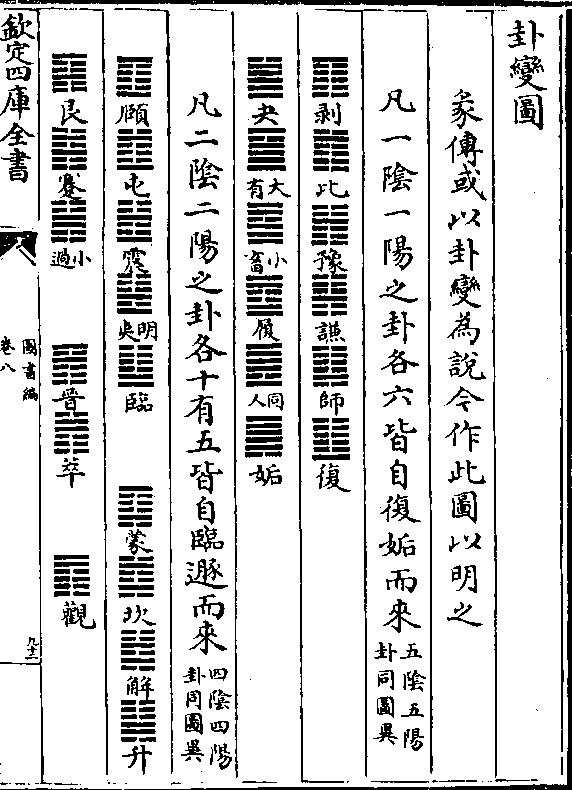 卦變圖
彖傳或以卦變為說今作此圖以明之
凡一陰一陽之卦各六皆自復姤而來 五陰五陽卦同圖異
剥 比 豫 謙 師 復
夬 大有 小畜 履 同人 姤
凡二陰二陽之卦各十有五皆自臨遯而來 四陰四陽卦同圖異
頤 屯 震 明夷 臨 蒙 坎 解 升
艮 蹇 小過 晉 萃 觀
欽定四庫全書
圖書編
卷八